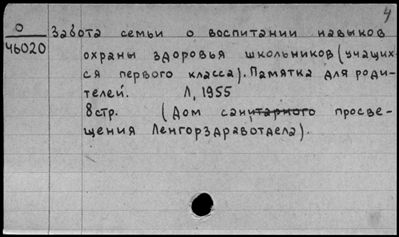 4
О
46020
Забота семьи о воспитании навыков
охраны здоровья школьников (учащих-
ся первого класса). Памятка для роди-
телей. Л, 1955
8 стр. (Дом санитарного просве-
щения Ленгорздравотдела).